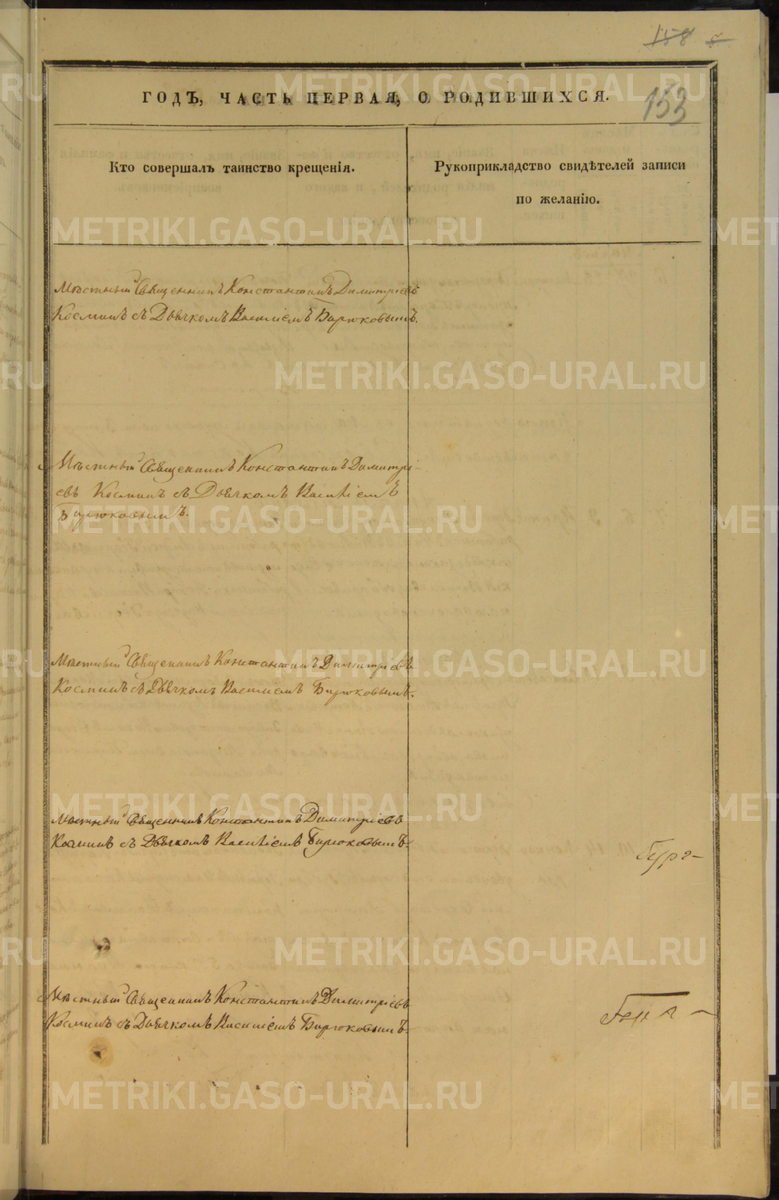 158
153
ГОДЪ, ЧАСТЬ ПЕРВАЯ, О РОДИВШИХСЯ.
Кто совершалъ таинство крещенія.
Рукоприкладство свидѣтелей записи
по желанію.
Мѣстный Священникъ Константинъ Димитріевъ
Косминъ съ Дьячкомъ Василіемъ Бирюковымъ.
Мѣстный Священникъ Константинъ Димитрі-
евъ Косминъ съ Дьячкомъ Василіемъ
Бирюковымъ.
Мѣстный Священникъ Константинъ Димитріевъ
Косминъ съ Дьячкомъ Василіемъ Бирюковымъ.
Мѣстный Священникъ Константинъ Димитріевъ
Косминъ съ Дьячкомъ Василіемъ Бирюковымъ.
Мѣстный Священникъ Константинъ Димитріевъ
Косминъ съ Дьячкомъ Василіемъ Бирюковымъ.
METRIKI.GASO-URAL.RU